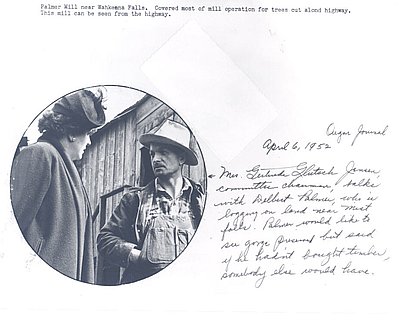 Palmer Mill near Wahkeena Falls. Covered most of mill operation for trees cut alond highway.
This mill can be seen from the highway.
Journal
April 6, 1952
Mrs. Gertrude Glutsch Jensen,
committee chairman, talks
with Delbert Palmer, who is
logging on land near Mist
falls. Palmer would like to
see gorge preserved but said
if he hadn't bought timber,
somebody else would have.